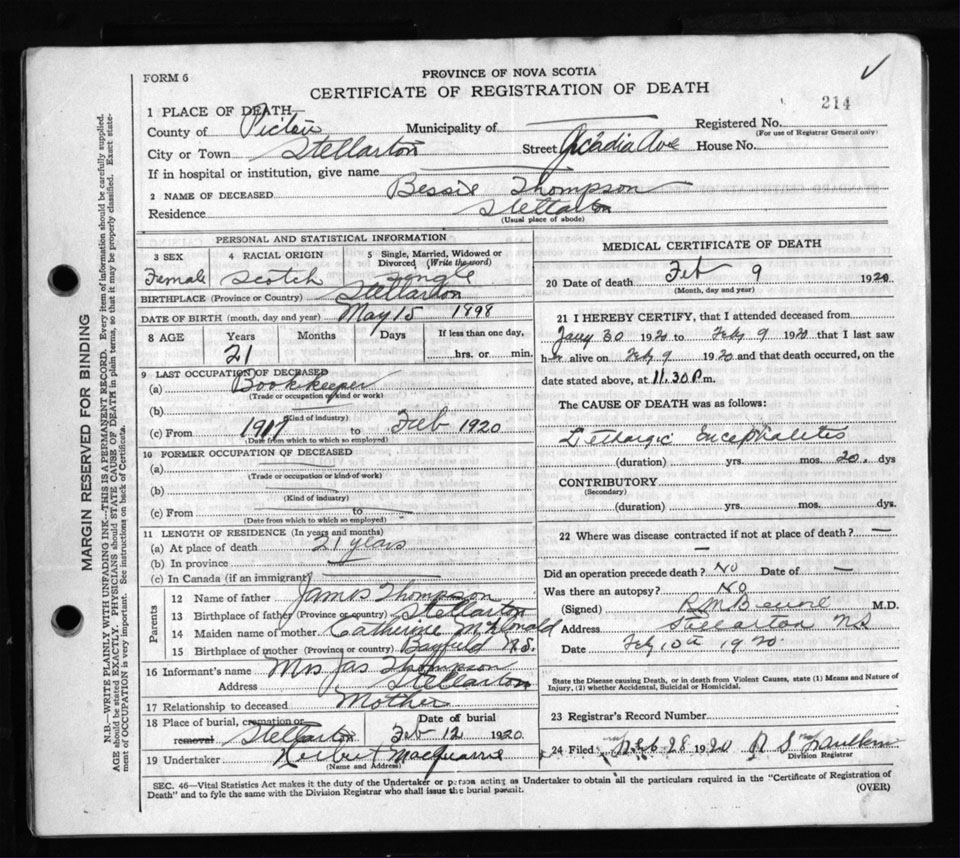 FORM 6
PROVINCE OF NOVA SCOTIA
CERTIFICATE OF REGISTRATION OF DEATH
214
1 PLACE OF DEATH—
County of Pictou Municipality of Registered No.
(For use of Registrar General only)
City or Town Stellarton Street Acadia Ave House No.
If in hospital or institution, give name
2 NAME OF DECEASED Bessie Thompson
Residence Stellarton
(Usual place of abode)
PERSONAL AND STATISTICAL INFORMATION
3 SEX 4 RACIAL ORIGIN 5 Single, Married, Widowed or Divorced (Write the word)
Female Scotch Single
BIRTHPLACE (Province or Country) Stellarton
DATE OF BIRTH (month, day and year) May 15 1898
8 AGE Years Months Days If less than one day,
21 hrs. or min.
9 LAST OCCUPATION OF DECEASED
(a) Bookkeeper
(Trade or occupation or kind or work)
(b)
(Kind of industry)
(c) From 1917 to Feb 1920
(Date from which to which so employed)
10 FORMER OCCUPATION OF DECEASED
(a)
(Trade or occupation or kind of work)
(b)
(Kind of industry)
(c) From to
(Date from which to which so employed)
11 LENGTH OF RESIDENCE (In years and months)
(a) At place of death 21 years
(b) In province
(c) In Canada (if an immigrant)
Parents
12 Name of father James Thompson
13 Birthplace of father (Province or country) Stellarton
14 Maiden name of mother Catherine McDonald
15 Birthplace of mother (Prov. or Country) Bayfield N.S.
16 Informant's name Mrs Jas Thompson
Address Stellarton
17 Relationship to deceased Mother
18 Place of burial, cremation or removal Stellarton Date of burial Feb 12 1920
19 Undertaker Herbert MacQuarrie
(Name and Address)
MEDICAL CERTIFICATE OF DEATH
20 Date of death Feb 9 1920
(Month, day and year)
21 I HEREBY CERTIFY, that I attended deceased from
Jany 30 1920 to Feby 9 1920 that I last saw
her alive on Feby 9 1920 and that death occurred, on the
date stated above, at 11.30 P.m.
The CAUSE OF DEATH was as follows:
Lethargic Encephalitis
(duration) yrs. mos. 20 dys
CONTRIBUTORY
(Secondary)
(duration) yrs. mos. dys.
22 Where was disease contracted if not at place of death? —
—
Did an operation precede death? No Date of —
Was there an autopsy? No
(Signed) M.D.
Address Stellarton NS
Date Feby 10th 1920
State the Disease causing Death, or in death from Violent Causes, state (1) Means and Nature of
Injury, (2) whether Accidental, Suicidal or Homicidal.
23 Registrar's Record Number
24 Filed Feb 28 1920 R S
Division Registrar
SEC. 46—Vital Statistics Act makes it the duty of the Undertaker or person acting as Undertaker to obtain all the particulars required in the "Certificate of Registration of
Death" and to fyle the same with the Division Registrar who shall issue the burial permit.
(OVER)
MARGIN RESERVED FOR BINDING
N.B.—WRITE PLAINLY WITH UNFADING INK—THIS IS A PERMANENT RECORD. Every item of information should be carefully supplied.
AGE should be stated EXACTLY. PHYSICIANS should STATE CAUSE OF DEATH in plain terms, so that it may be properly classified. Exact state-
ment of OCCUPATION is very important. See instructions on back of Certificate.